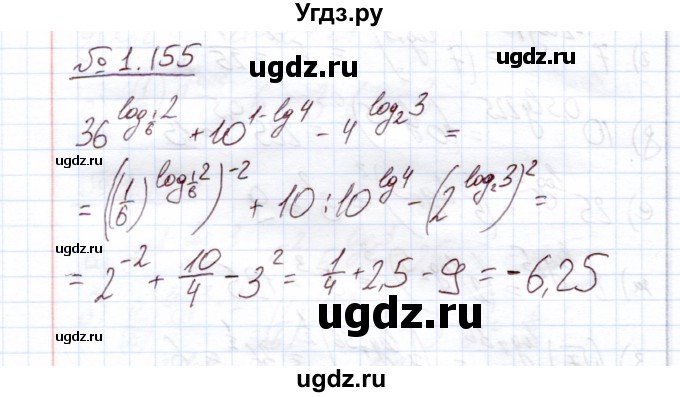 Угдз.ру
№ 1.155
ugdz.ru ugdz.ru
36^{log_{1/6} 2} + 10^{1-lg 4} - 4^{log_2 3} =
ugdz.ru ugdz.ru
= ((1/6)^{log_{1/6} 2})^{-2} + 10 : 10^{lg 4} - (2^{log_2 3})^2 =
ugdz.ru ugdz.ru
= 2^{-2} + 10/4 - 3^2 = 1/4 + 2,5 - 9 = -6,25
ugdz.ru ugdz.ru
ugdz.ru ugdz.ru
ugdz.ru